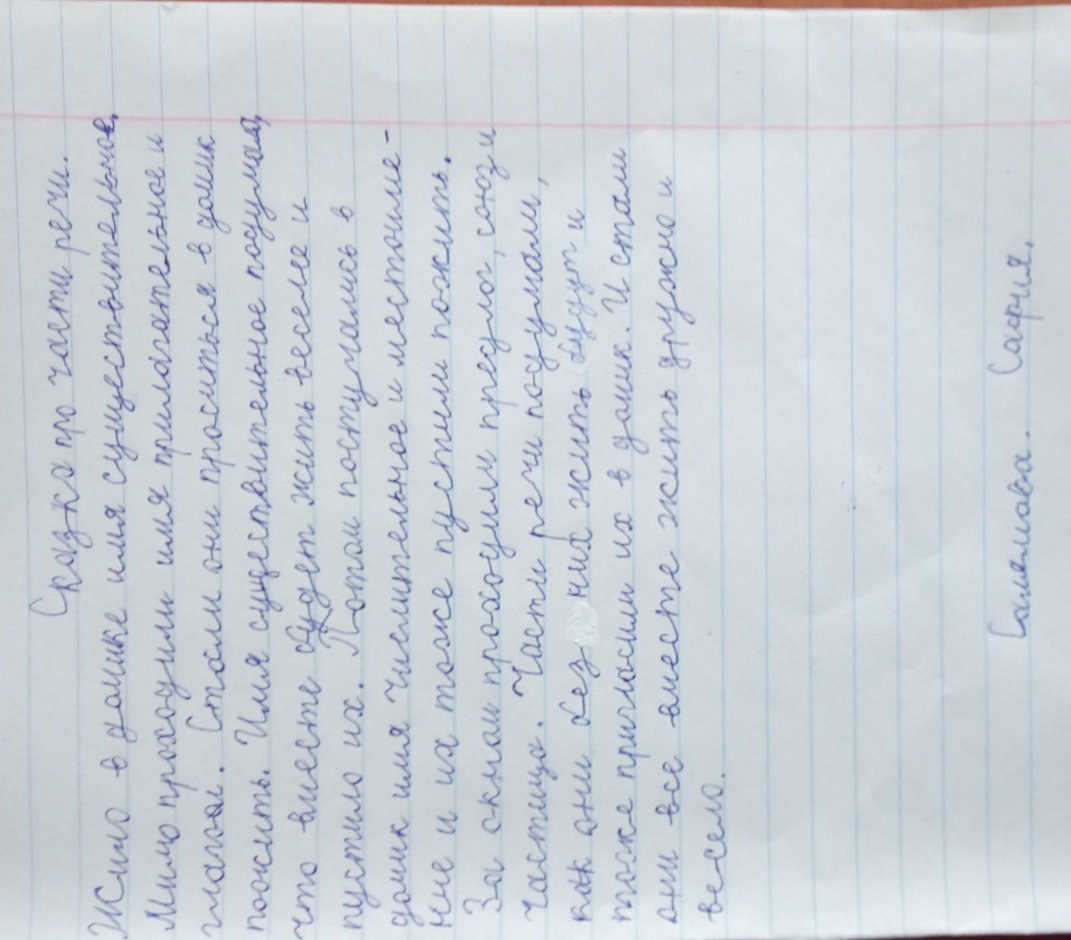 Сказка про части речи.
Жило в домике имя существительное,
Мимо проходили имя прилагательное и
глагол. Стали они проситься в домик
пожить. Имя существительное подумало,
что вместе будет жить веселее и
пустило их. Потом постучались в
домик имя числительное и местоиме-
ние и их тоже пустили пожить.
За окном проходили предлог, союз и
частица. Части речи подумали,
как они без них жить будут и
тоже пригласили их в домик. И стали
они все вместе жить дружно и
весело.
Самамова. София.